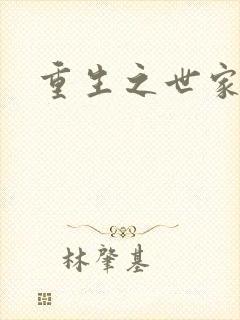 重生之世家
林肇基